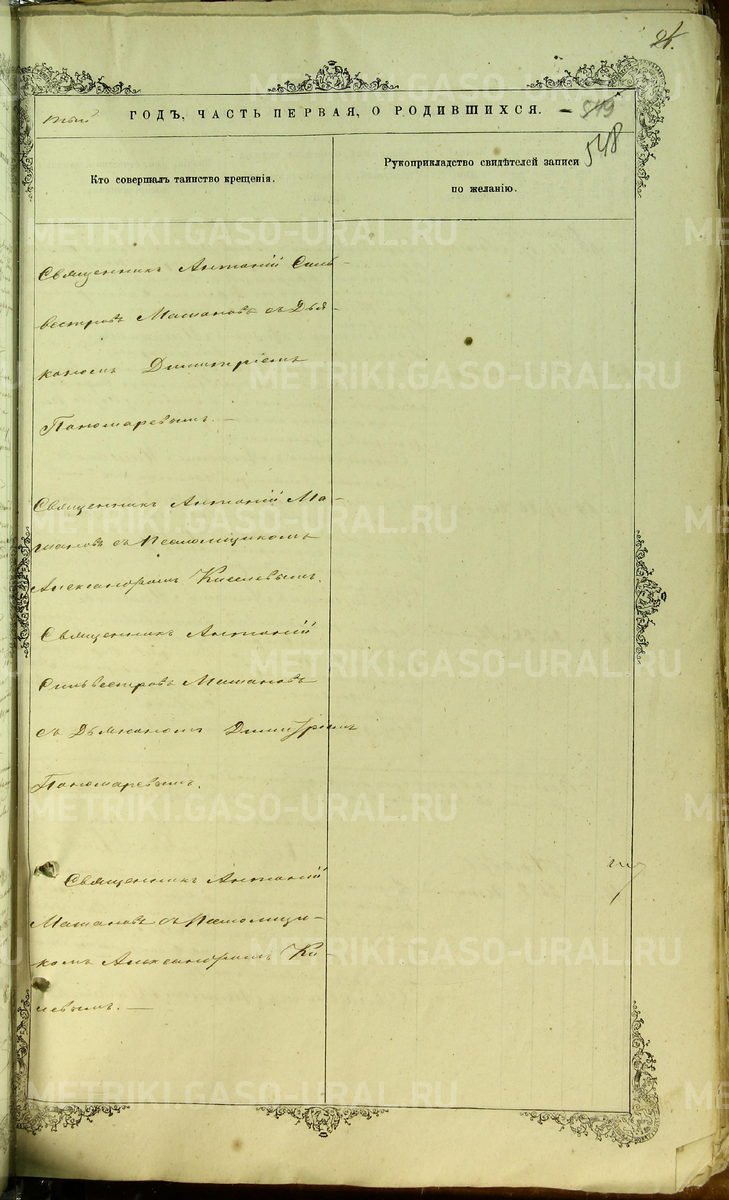 24.
тый ГОДЪ, ЧАСТЬ ПЕРВАЯ, О РОДИВШИХСЯ.
549
548
Кто совершалъ таинство крещенія.
Рукоприкладство свидѣтелей записи
по желанію.
Священникъ Антоній Силь-
вестровъ Машановъ съ Дья-
кономъ Димитріемъ
Пономаревымъ. —
Священникъ Антоній Ма-
шановъ съ Псаломщикомъ
Александромъ Киселевымъ.
Священникъ Антоній
Сильвестровъ Машановъ
съ Дьякономъ Димитріемъ
Пономаревымъ.
Священникъ Антоній
Машановъ съ Псаломщи-
комъ Александромъ Ки-
левымъ. —
METRIKI.GASO-URAL.RU